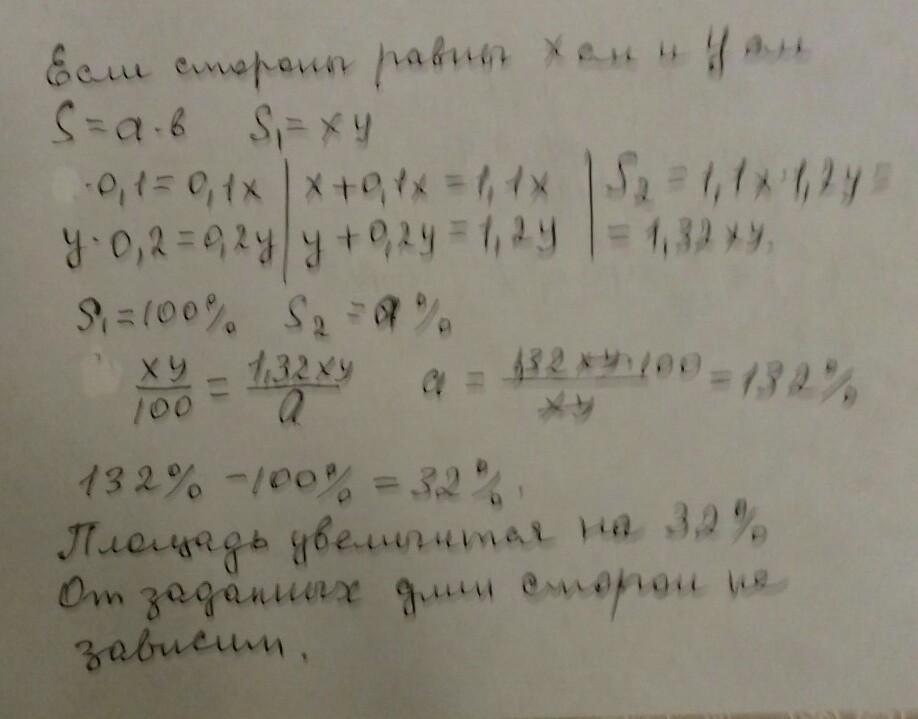 Если стороны равны x см и y см
S = a·в S₁ = xy
·0,1 = 0,1x | x + 0,1x = 1,1x | S₂ = 1,1x·1,2y =
y·0,2 = 0,2y | y + 0,2y = 1,2y | = 1,32xy.
S₁ = 100% S₂ = a%
xy/100 = 1,32xy/a a = 1,32xy·100/xy = 132%
132% - 100% = 32%.
Площадь увеличится на 32%
От заданных длин сторон не
зависит.